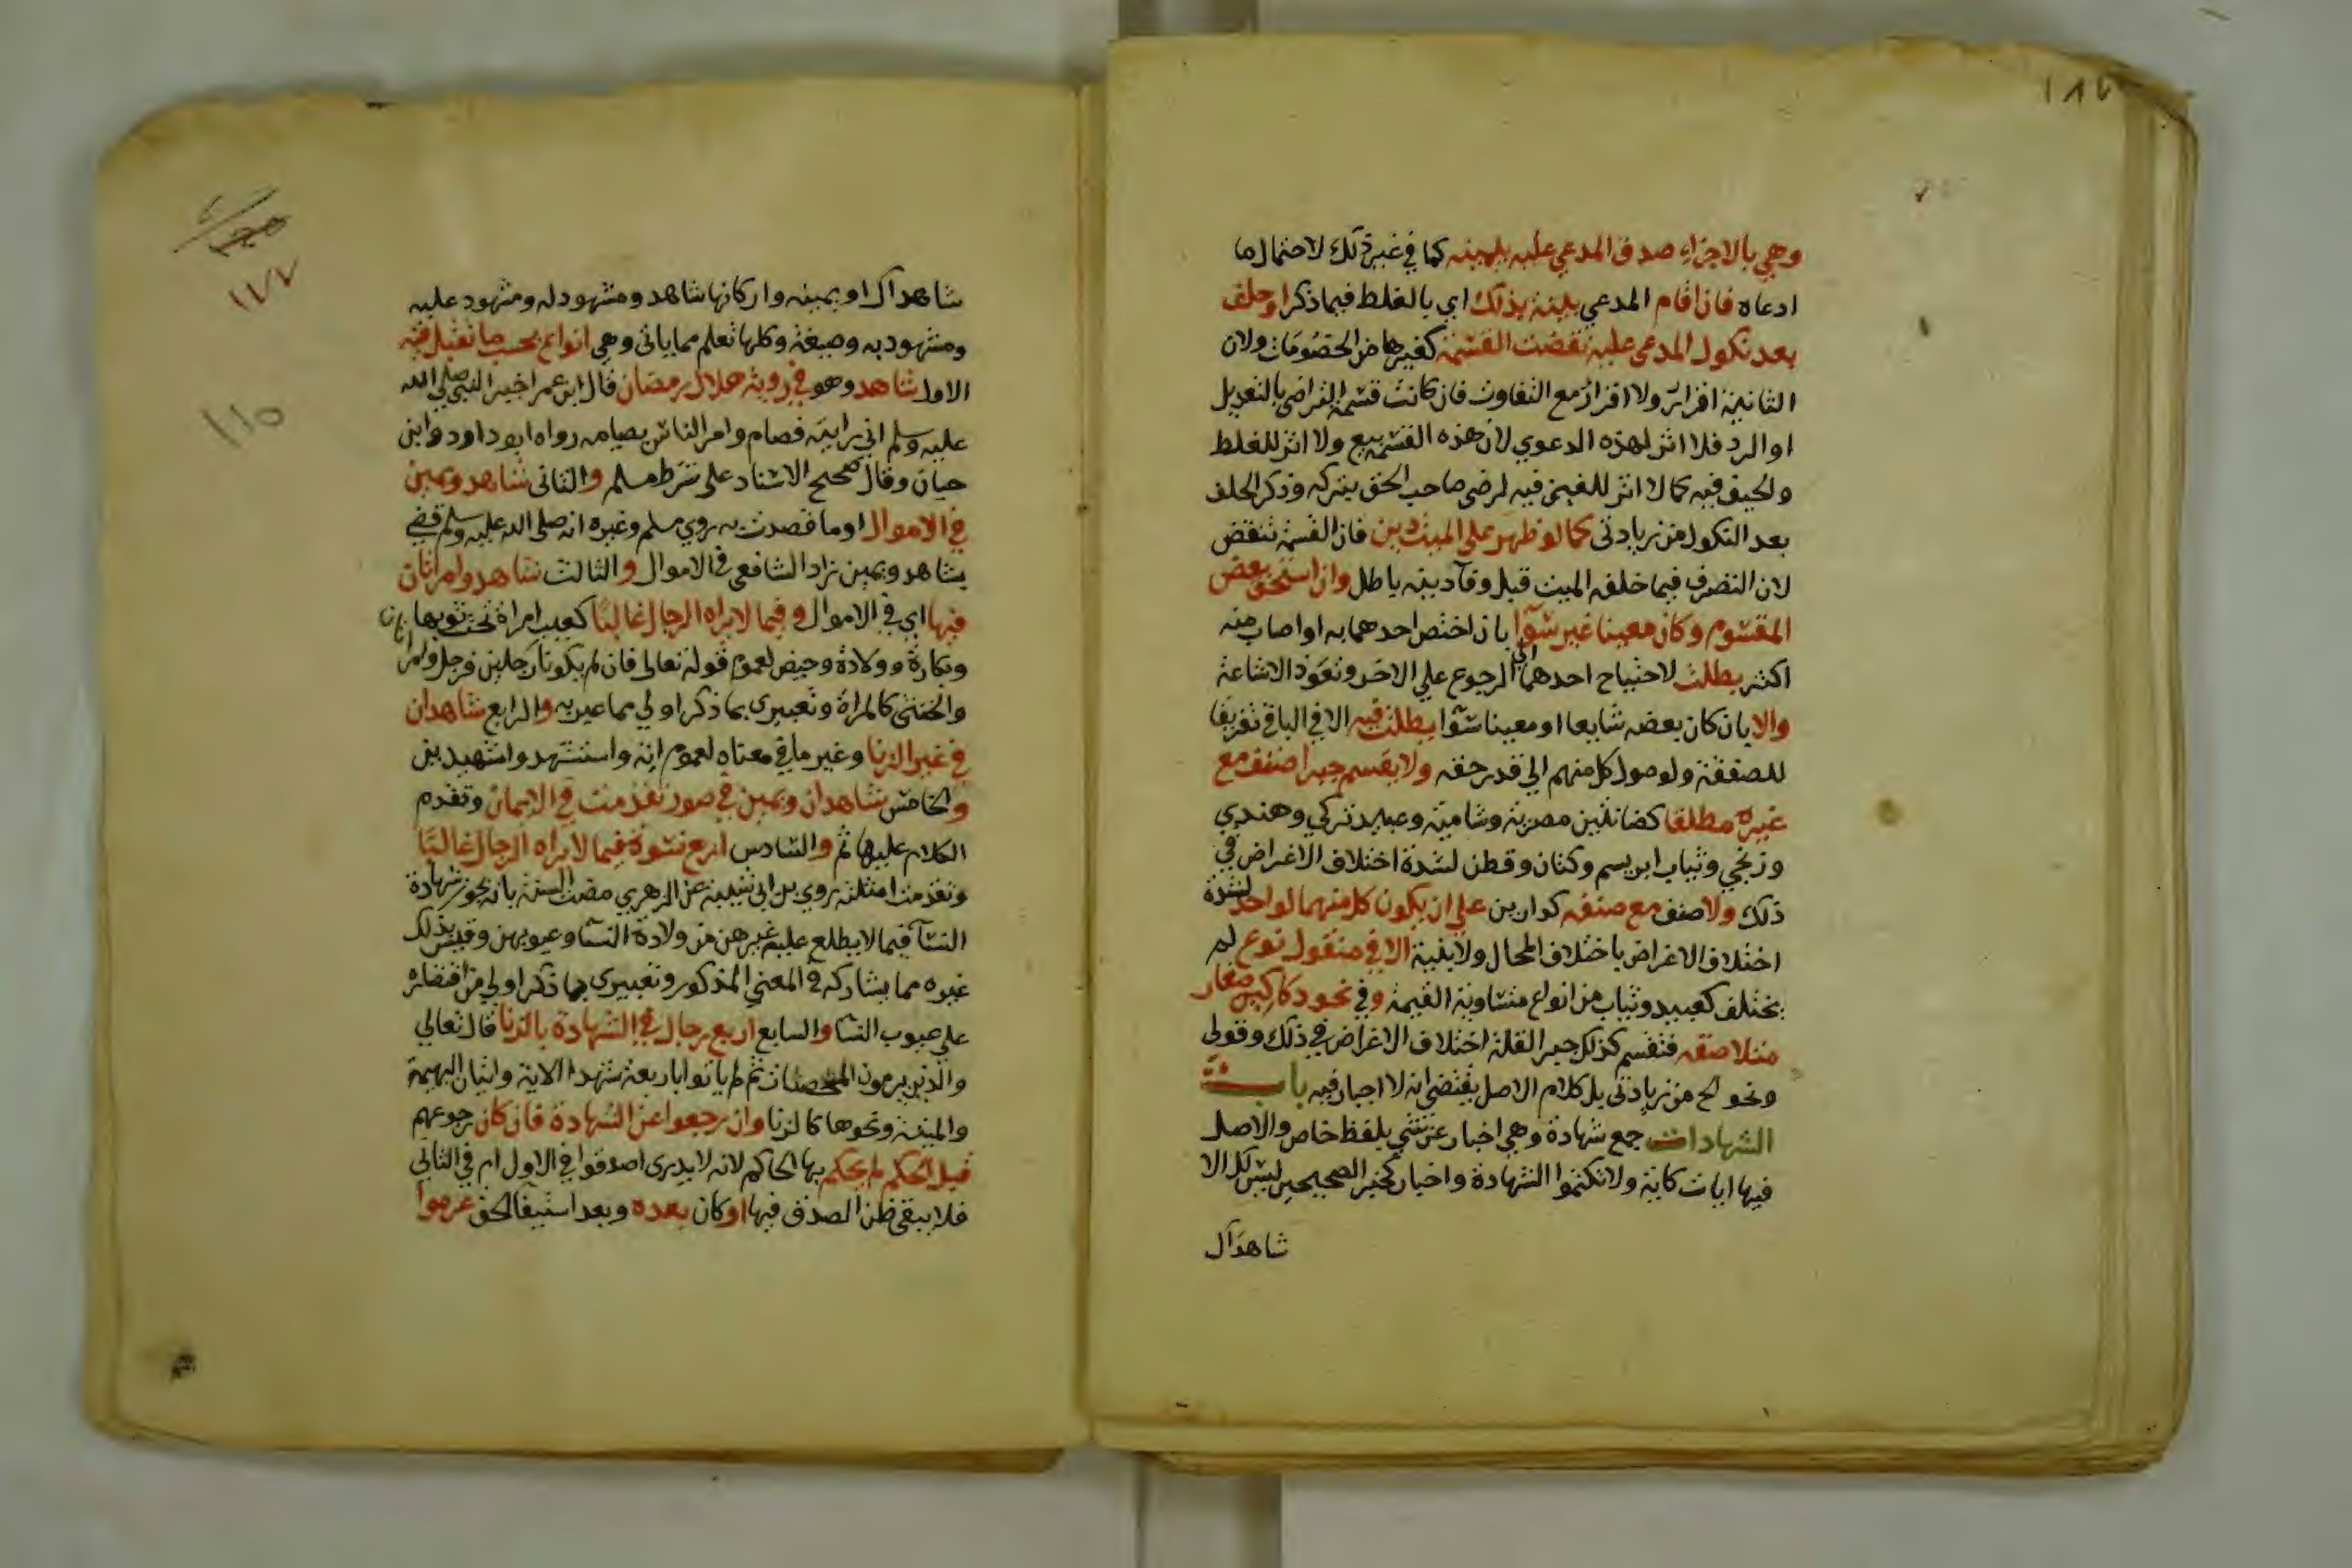 وهي بالاجزاء صدق المدعي عليه بيمينه كما في غير ذلك لاحتمال ما
ادعاه فان اقام المدعي بينة بذلك اي بالغلط فيما ذكر او حلف
بعد نكول المدعي عليه نقضت القسمة كغيرها من الخصومات ولان
الثانية افراز ولا افراز مع التفاوت فان كانت قسمة التراضي بالتعديل
او الرد فلا اثر لهذه الدعوي لان هذه القسمة بيع ولا اثر للغلط
والحيف فيه كما لا اثر للغبن فيه لرضى صاحب الحق بتركه وذكر الحلف
بعد النكول من زيادتى كما لو ظهر علي الميت دين فان القسمة تنقض
لان التصرف فيما خلفه الميت قبل وفاء دينه باطل وان استحق بعض
المقسوم وكان معينا غير سوآ بان اختص احدهما به او اصاب منه
اكثر بطلت لاحتياج احدهما الي الرجوع علي الاخر وتعود الاشاعة
والا بان كان بعضه شايعا او معينا سوآ بطلت فيه الا في الباقي تفريقا
للصفقة ولوصول كل منهم الي قدر حقه ولا يقسم جبرا صنف مع
غيره مطلقا كضانئين مصرية وشامية وعبيد تركي وهندي
وزنجي وثياب ابريسم وكتان وقطن لشدة اختلاف الاغراض في
ذلك ولا صنف مع صنفه كدارين علي ان يكون كل منهما لواحد لشدة
اختلاف الاغراض باختلاف المحال ولابنية الا في منقول نوع لم
يختلف كعبيد وثياب من انواع متساوية القيمة وفي نحو دكاكين صغار
متلاصقه فتقسم كذلك جبرا لقلة اختلاف الاغراض في ذلك وقولي
ونحو الخ من زيادتى بل كلام الاصل يقتضي انه لا اجبار فيه باب
الشهادات جمع شهادة وهي اخبار عن شي بلفظ خاص والاصل
فيها ايات كاية ولا تكتموا الشهادة واخبار كخبر الصحيحين ليس لك الا
شاهداك
شاهداك او يمينه واركانها شاهد ومشهود له ومشهود عليه
ومشهود به وصيغة وكلها تعلم مما ياتى وهي انواع بحسب ما تقبل فيه
الاول شاهد وهو في روية هلال رمضان قال ابن عمر اخبر النبي صلي الله
عليه وسلم اني رايته فصام وامر الناس بصيامه رواه ابو داود وابن
حبان وقال صحيح الاسناد على شرط مسلم والثانى شاهد ويمين
في الاموال او ما قصدت به روي مسلم وغيره انه صلى الله عليه وسلم قضي
بشاهد ويمين زاد الشافعي في الاموال والثالث شاهد وامراتان
فيها اي في الاموال وفيما لا يراه الرجال غالبا كعيب امراة تحت ثوبها
وبكارة وولادة وحيض لعموم قوله تعالى فان لم يكونا رجلين فرجل وامراتان
والخنثى كالمراة وتعبيرى بما ذكر اولي مما عبر به والرابع شاهدان
في غير الزنا وغير ما في معناه لعموم اية واستشهدوا شهيدين
والخامس شاهدان ويمين في صور تقدمت في الايمان وتقدم
الكلام عليها ثم والسادس اربع نسوة فيما لا يراه الرجال غالبا
وتقدمت امثلته روي بن ابي شيبة عن الزهري مضت السنة بانه يجوز شهادة
النسآ فيما لا يطلع عليه غيرهن من ولادة النسا وعيوبهن وقيس بذلك
غيره مما يشاركه في المعني المذكور وتعبيرى بما ذكر اولي من اقتصاره
علي عيوب النسا والسابع اربع رجال في الشهادة بالزنا قال تعالي
والذين يرمون المحصنات ثم لم ياتوا باربعة شهدا الاية واتيان البهيمة
والميتة ونحوها كالزنا وان رجعوا عن الشهادة فان كان رجوعهم
قبل الحكم لم يحكم بها الحاكم لانه لا يدرى اصدقوا في الاول ام في الثاني
فلا يبقى ظن الصدق فيها او كان بعده وبعد استيفا الحق غرموا
١٧٧
١١٥